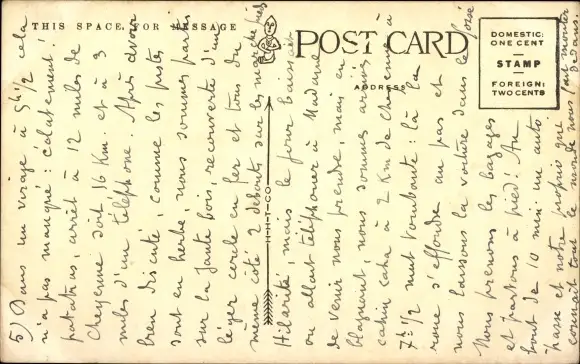 THIS SPACE FOR MESSAGE
POST CARD
ADDRESS
DOMESTIC:
ONE CENT
STAMP
FOREIGN:
TWO CENTS
H-H-T-CO
5) Dans un virage à 5h 1/2 cela
n'a pas manqué : éclatement !
patatras, arrêt à 12 miles de
Cheyenne soit 16 Km. et à 3
miles d'un téléphone. Après avoir
bien discuté, comme les pistes
sont en herbe nous sommes partis
sur la jante bois, recouverte d'un
léger cercle en fer et tous du
même côté 2 debouts sur les marche pieds
Hilarité, mais le jour baisse et
on allait téléphoner à Madame
de venir nous prendre, mais en
blaguant, nous sommes arrivés
cahin caha à 2 Km de Cheyenne à
7h 1/2 nuit tombante : là la
roue s'effondre au pas et
nous laissons la voiture dans le fossé
Nous prenons les bagages
et partons à pied ! Au
bout de 10 min. un auto
passe et notre proprio qui
connait tout le monde nous fait monter
dedans.